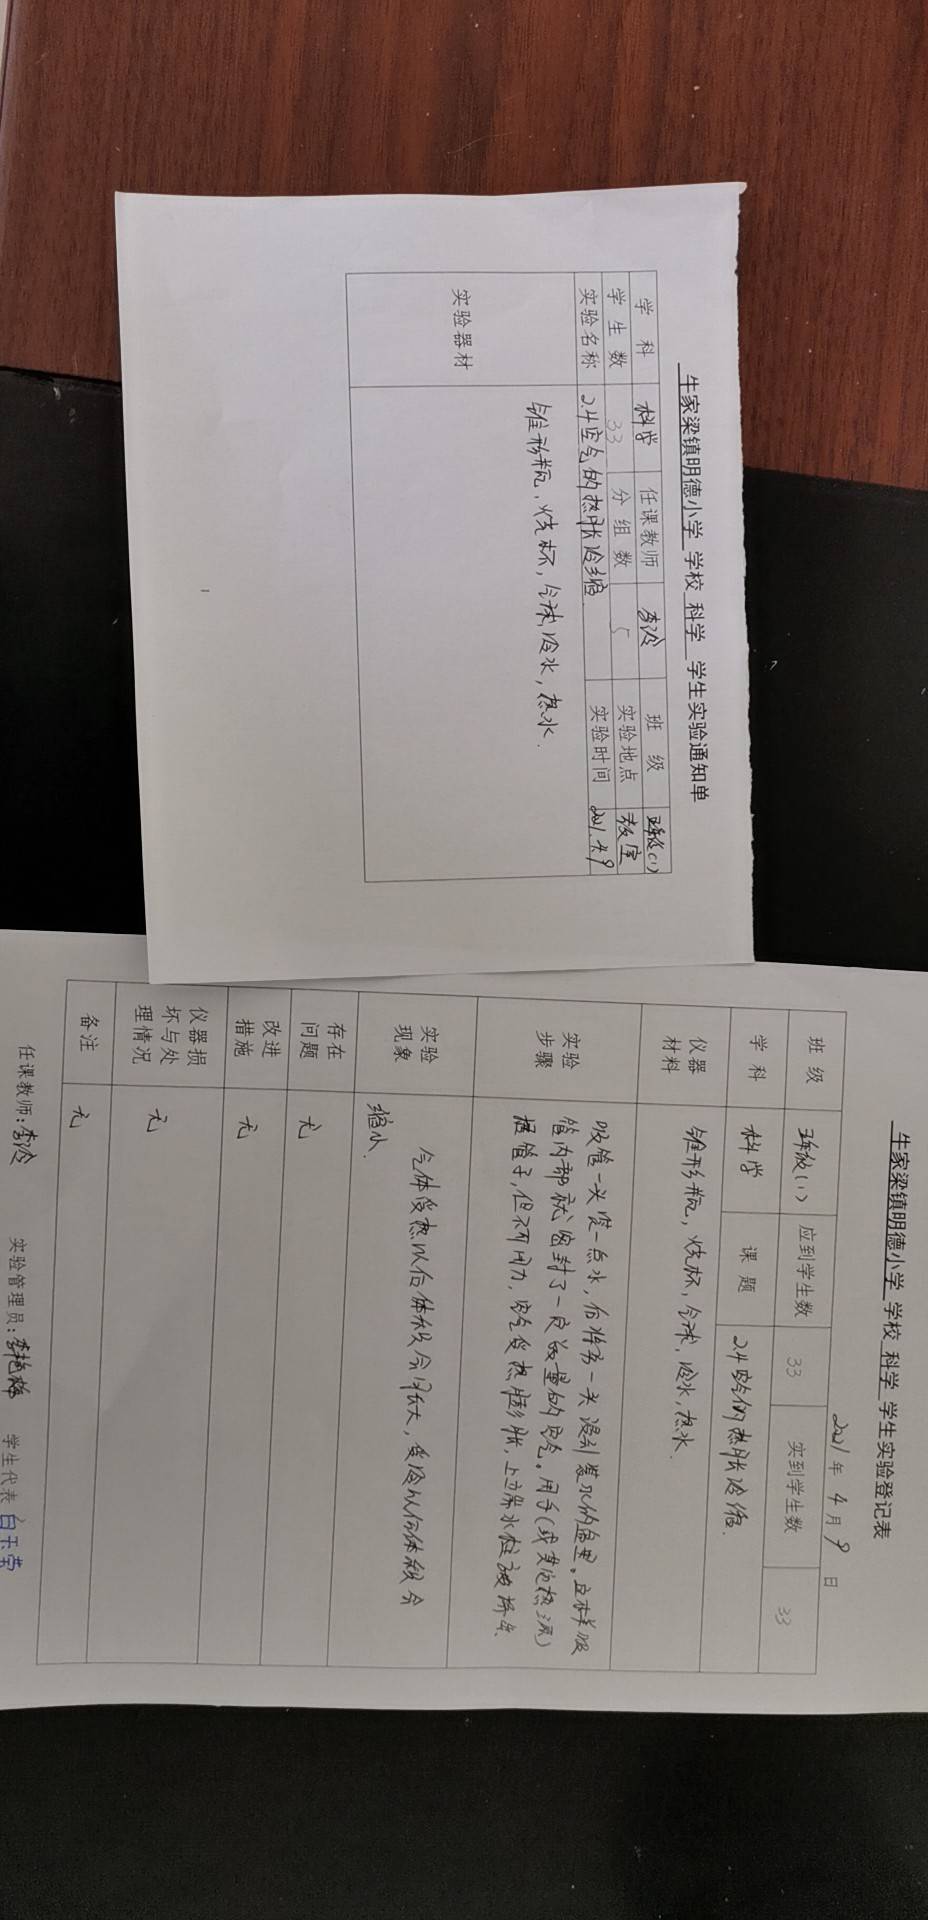 牛家梁镇明德小学 学校 科学 学生实验通知单
学 科 科学 任课教师 李波 班 级 五年级(1)
学 生 数 33 分 组 数 5 实验地点 教室
实验名称 2.4空气的热胀冷缩 实验时间 2021.4.9
实验器材 锥形瓶、烧杯,气球,冷水,热水.
牛家梁镇明德小学 学校 科学 学生实验登记表
2021年 4月 9日
班 级 五年级(1) 应到学生数 33 实到学生数 33
学 科 科学 课 题 2.4空气的热胀冷缩.
仪器材料 锥形瓶,烧杯,气球,冷水,热水.
实验步骤
吸管一头蘸一点水,后将另一头浸到装水的里,这样吸
管内部就密封了一定数量的空气。用手(或其他热源)
握管子,但不可用力,空气受热膨胀,上部水柱被挤出.
实验现象
气体受热以后体积会增大,受冷以后体积会
缩小.
存在问题 无
改进措施 无
仪器损坏与处理情况 无
备注 无
任课教师:李波 实验管理员:李艳梅 学生代表 白玉莹